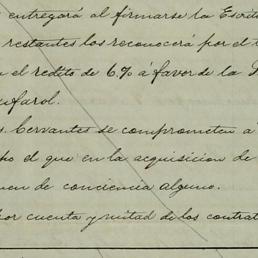 entregará al firmarse la Escrit
restantes los reconocerá por el
el redito de 6.% á favor de la
ufarol.
s. Cervantes se comprometen a
po el que en la acquisicion de
men de conciencia alguno.
por cuenta y mitad de los contrat